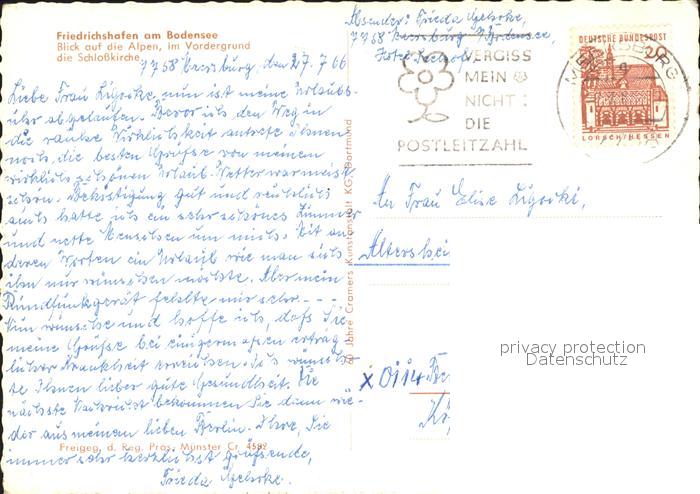 Friedrichshafen am Bodensee
Blick auf die Alpen, im Vordergrund
die Schloßkirche
7758 Meersburg, den 27. 7. 66
Liebe Frau Ligocki, nun ist meine Urlaubs-
uhr abgelaufen. Bevor ich den Weg in
die rauhe Wirklichkeit antrete Ihnen
noch die besten Grüße von meinem
wirklich schönen Urlaub. Wetter war meist
schön. Beköstigung gut und reichlich
auch hatte ich ein sehr schönes Zimmer
und nette Menschen um mich. Mit an-
deren Worten ein Urlaub wie man sich
ihn nur wünschen möchte. Aber mein
Rundfunkgerät fehlte mir sehr. - - -
Nun wünsche und hoffe ich, daß Sie
meine Grüße bei einigermaßen erträg
licher Krankheit erreichen. Ich wünsch
te Ihnen lieber gute Gesundheit. Die
nächste Nachricht bekommen Sie dann wie-
der aus meinem lieben Berlin. Ihre, Sie
immer sehr herzlichst grüßende,
Frieda
Freigeg. d. Reg. Präs. Münster Cr. 4582
70 Jahre Cramers Kunstanstalt KG, Dortmund
Absender: Frieda
7758 Meersburg / Bodensee,
Hotel Seehof
VERGISS
MEIN
NICHT:
DIE
POSTLEITZAHL
MEERSBURG
DEUTSCHE BUNDESPOST
20
LORSCH/HESSEN
An Frau Elise Ligocki,
Altershei
x 0114 Be
privacy protection
Datenschutz